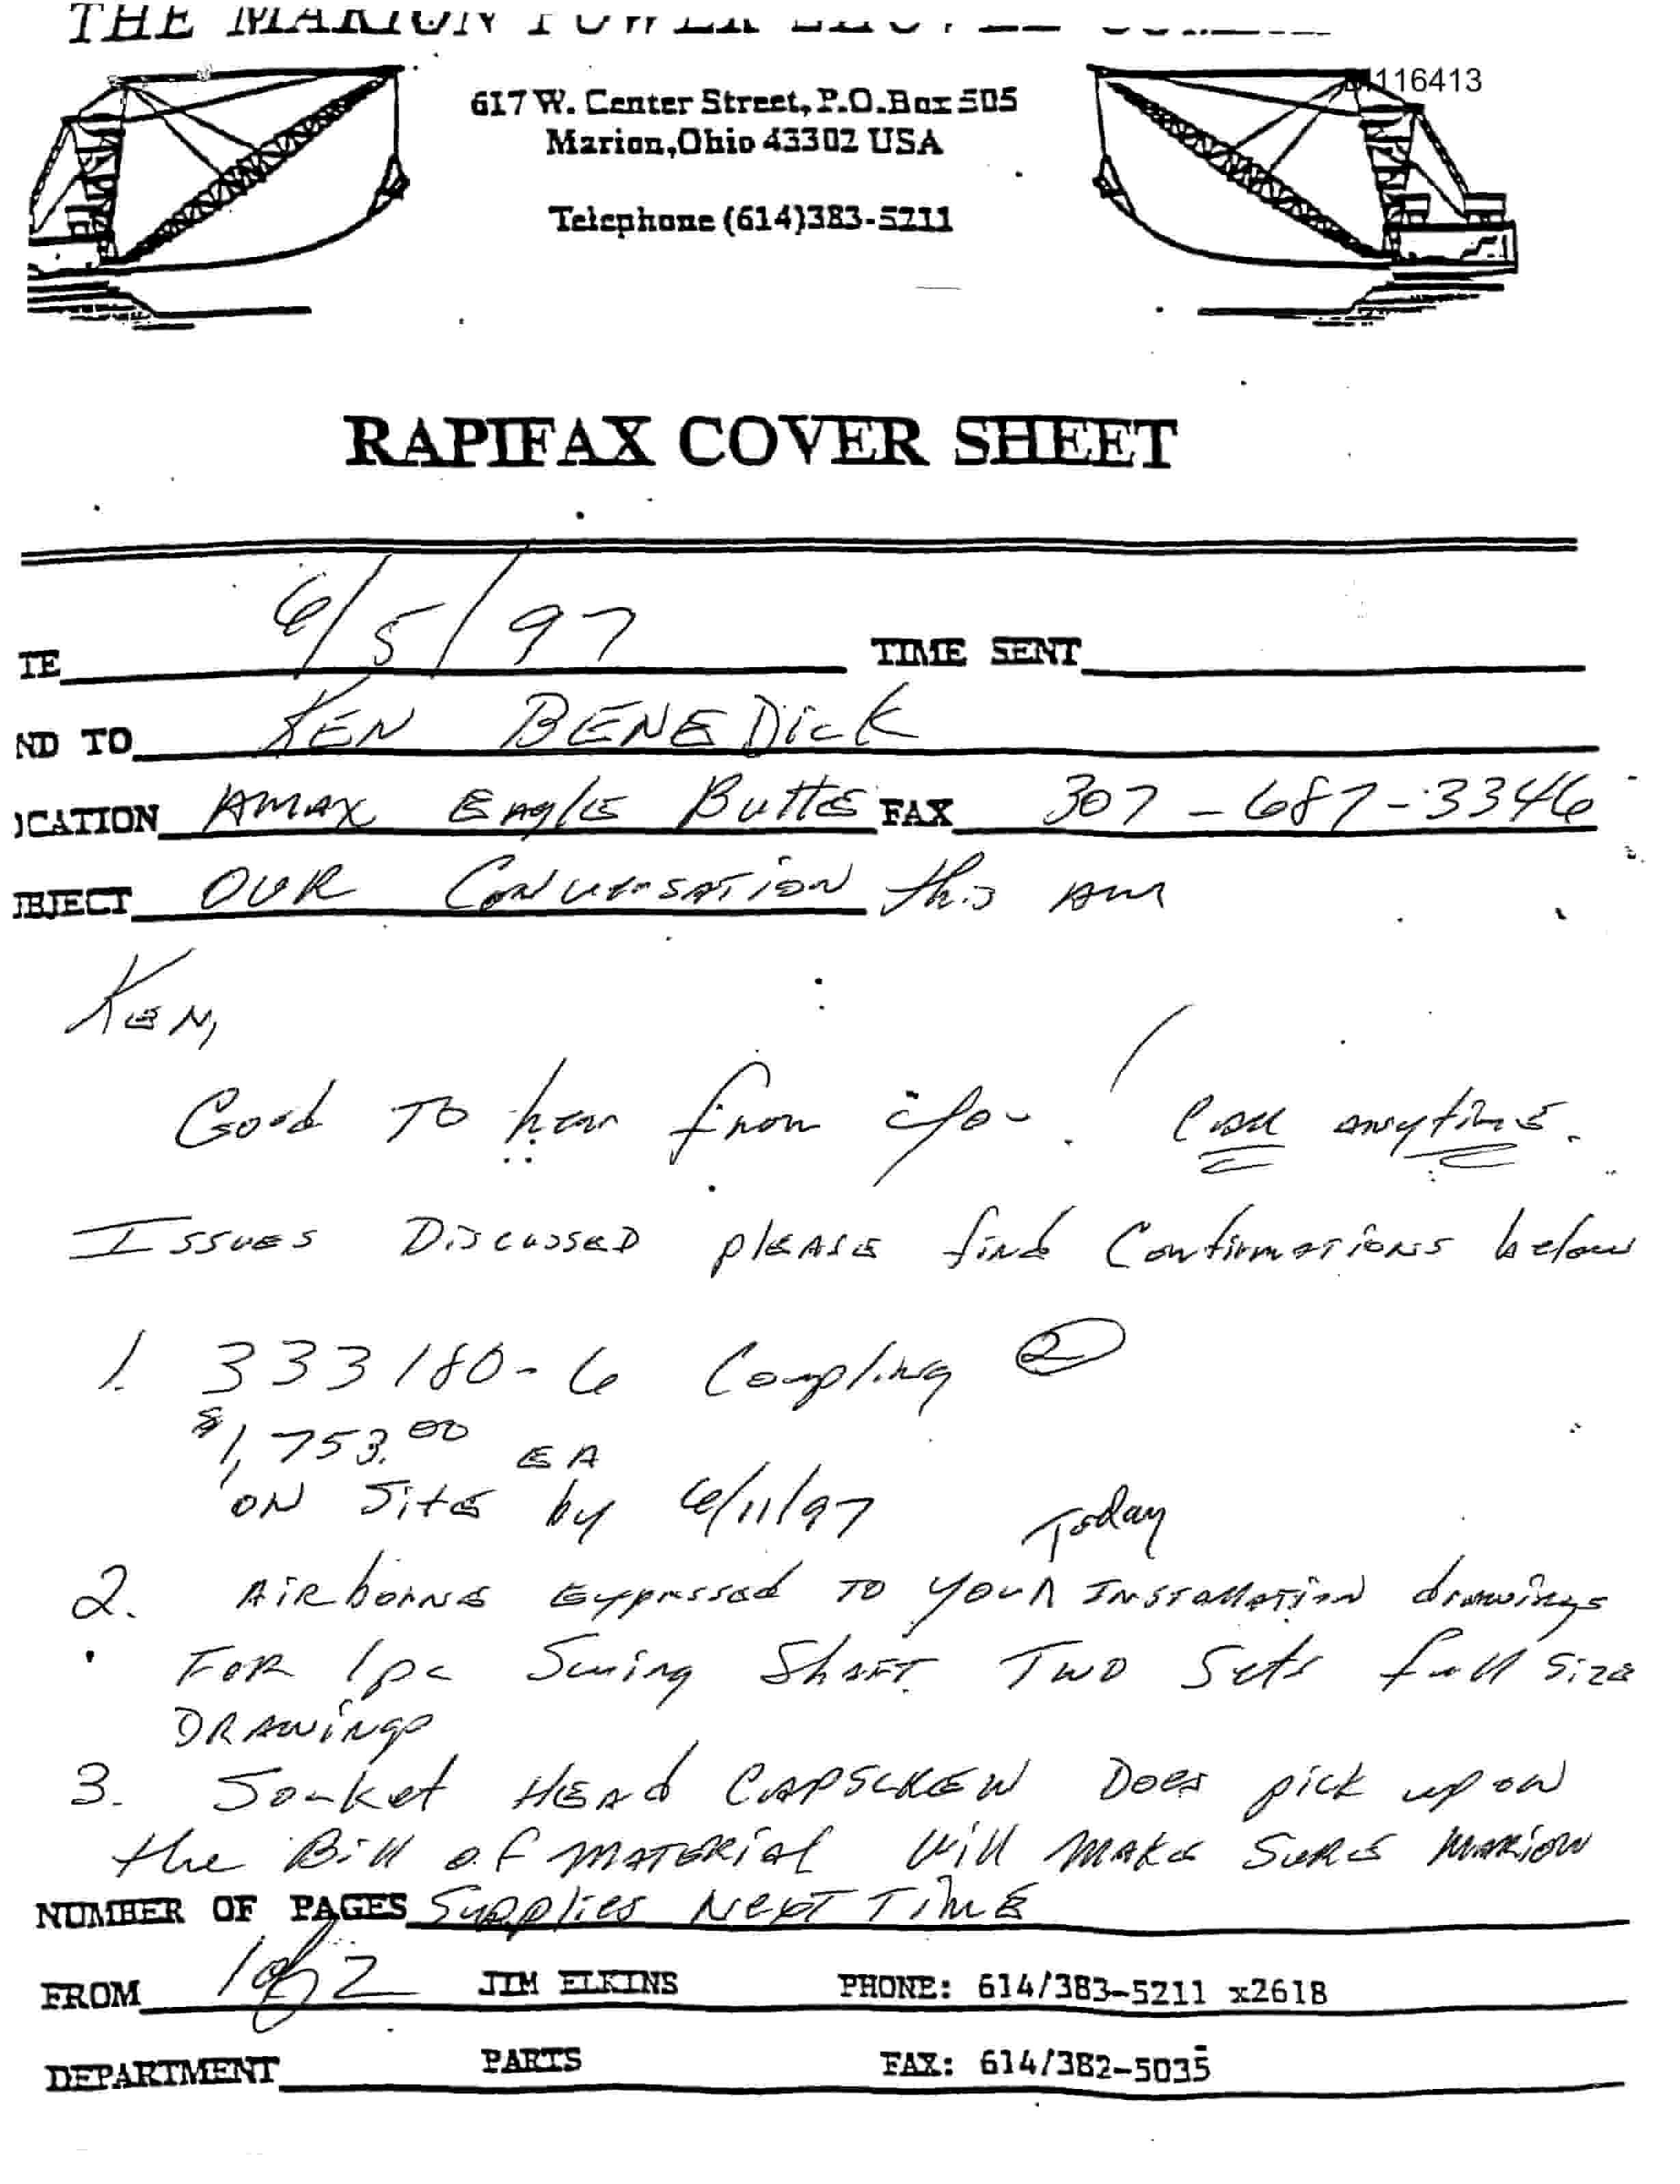 THE MARION POWER SHOVEL
116413
617 W. Center Street, P.O. Box 505
Marion, Ohio 43302 USA
Telephone (614)383-5211
RAPIFAX COVER SHEET
TE 6/5/97 TIME SENT
ND TO KEN BENEDICK
OCATION AMAX EAglE ButtE FAX 307-687-3346
BJECT OUR CONVERSATION this AM
KEN,
Good TO hear from you! Call anytime.
Issues Discussed please find Confirmations below
1. 333180-6 Coupling 2
$1,753.00 EA
ON SitE by 6/11/97
Today
2. AiRborne Expressed TO your INSTALLATION drawings
FOR 1pc Swing Shaft. Two Sets full size
DRAWINgs
3. Socket HEAd CAPSCREW Does pick up on
the Bill of MATERIAl Will MAKE SURE MARION
NUMBER OF PAGES Supplies NEXT TiME
FROM 1 of 2 JIM ELKINS PHONE: 614/383-5211 x2618
DEPARTMENT PARTS FAX: 614/382-5035